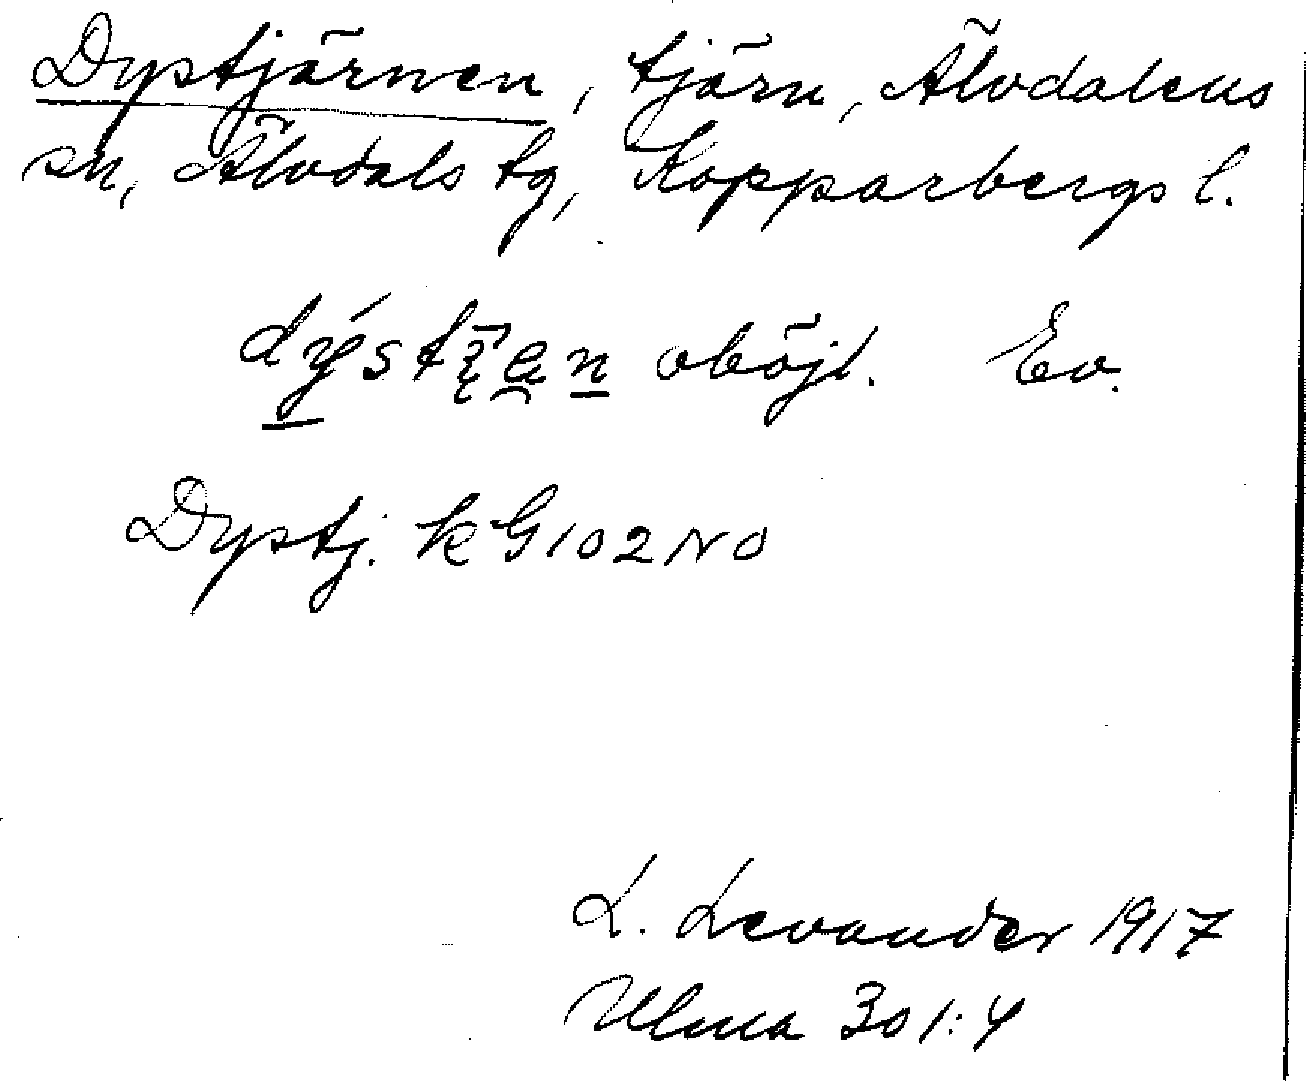 Dystjärnen, tjärn, Älvdalens
sn, Älvdals tg, Kopparbergs l.
oböjl. Ev.
Dystj. k G 102 NO
L. Levander 1917
Ulma 301:4